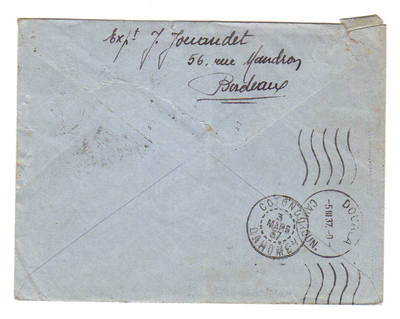 Expt J. Jouandet
56, rue Mandron
Bordeaux
COTONOU
3
MARS
37
DAHOMEY
DOUALA
-5 III 37.-0
CAMEROUN